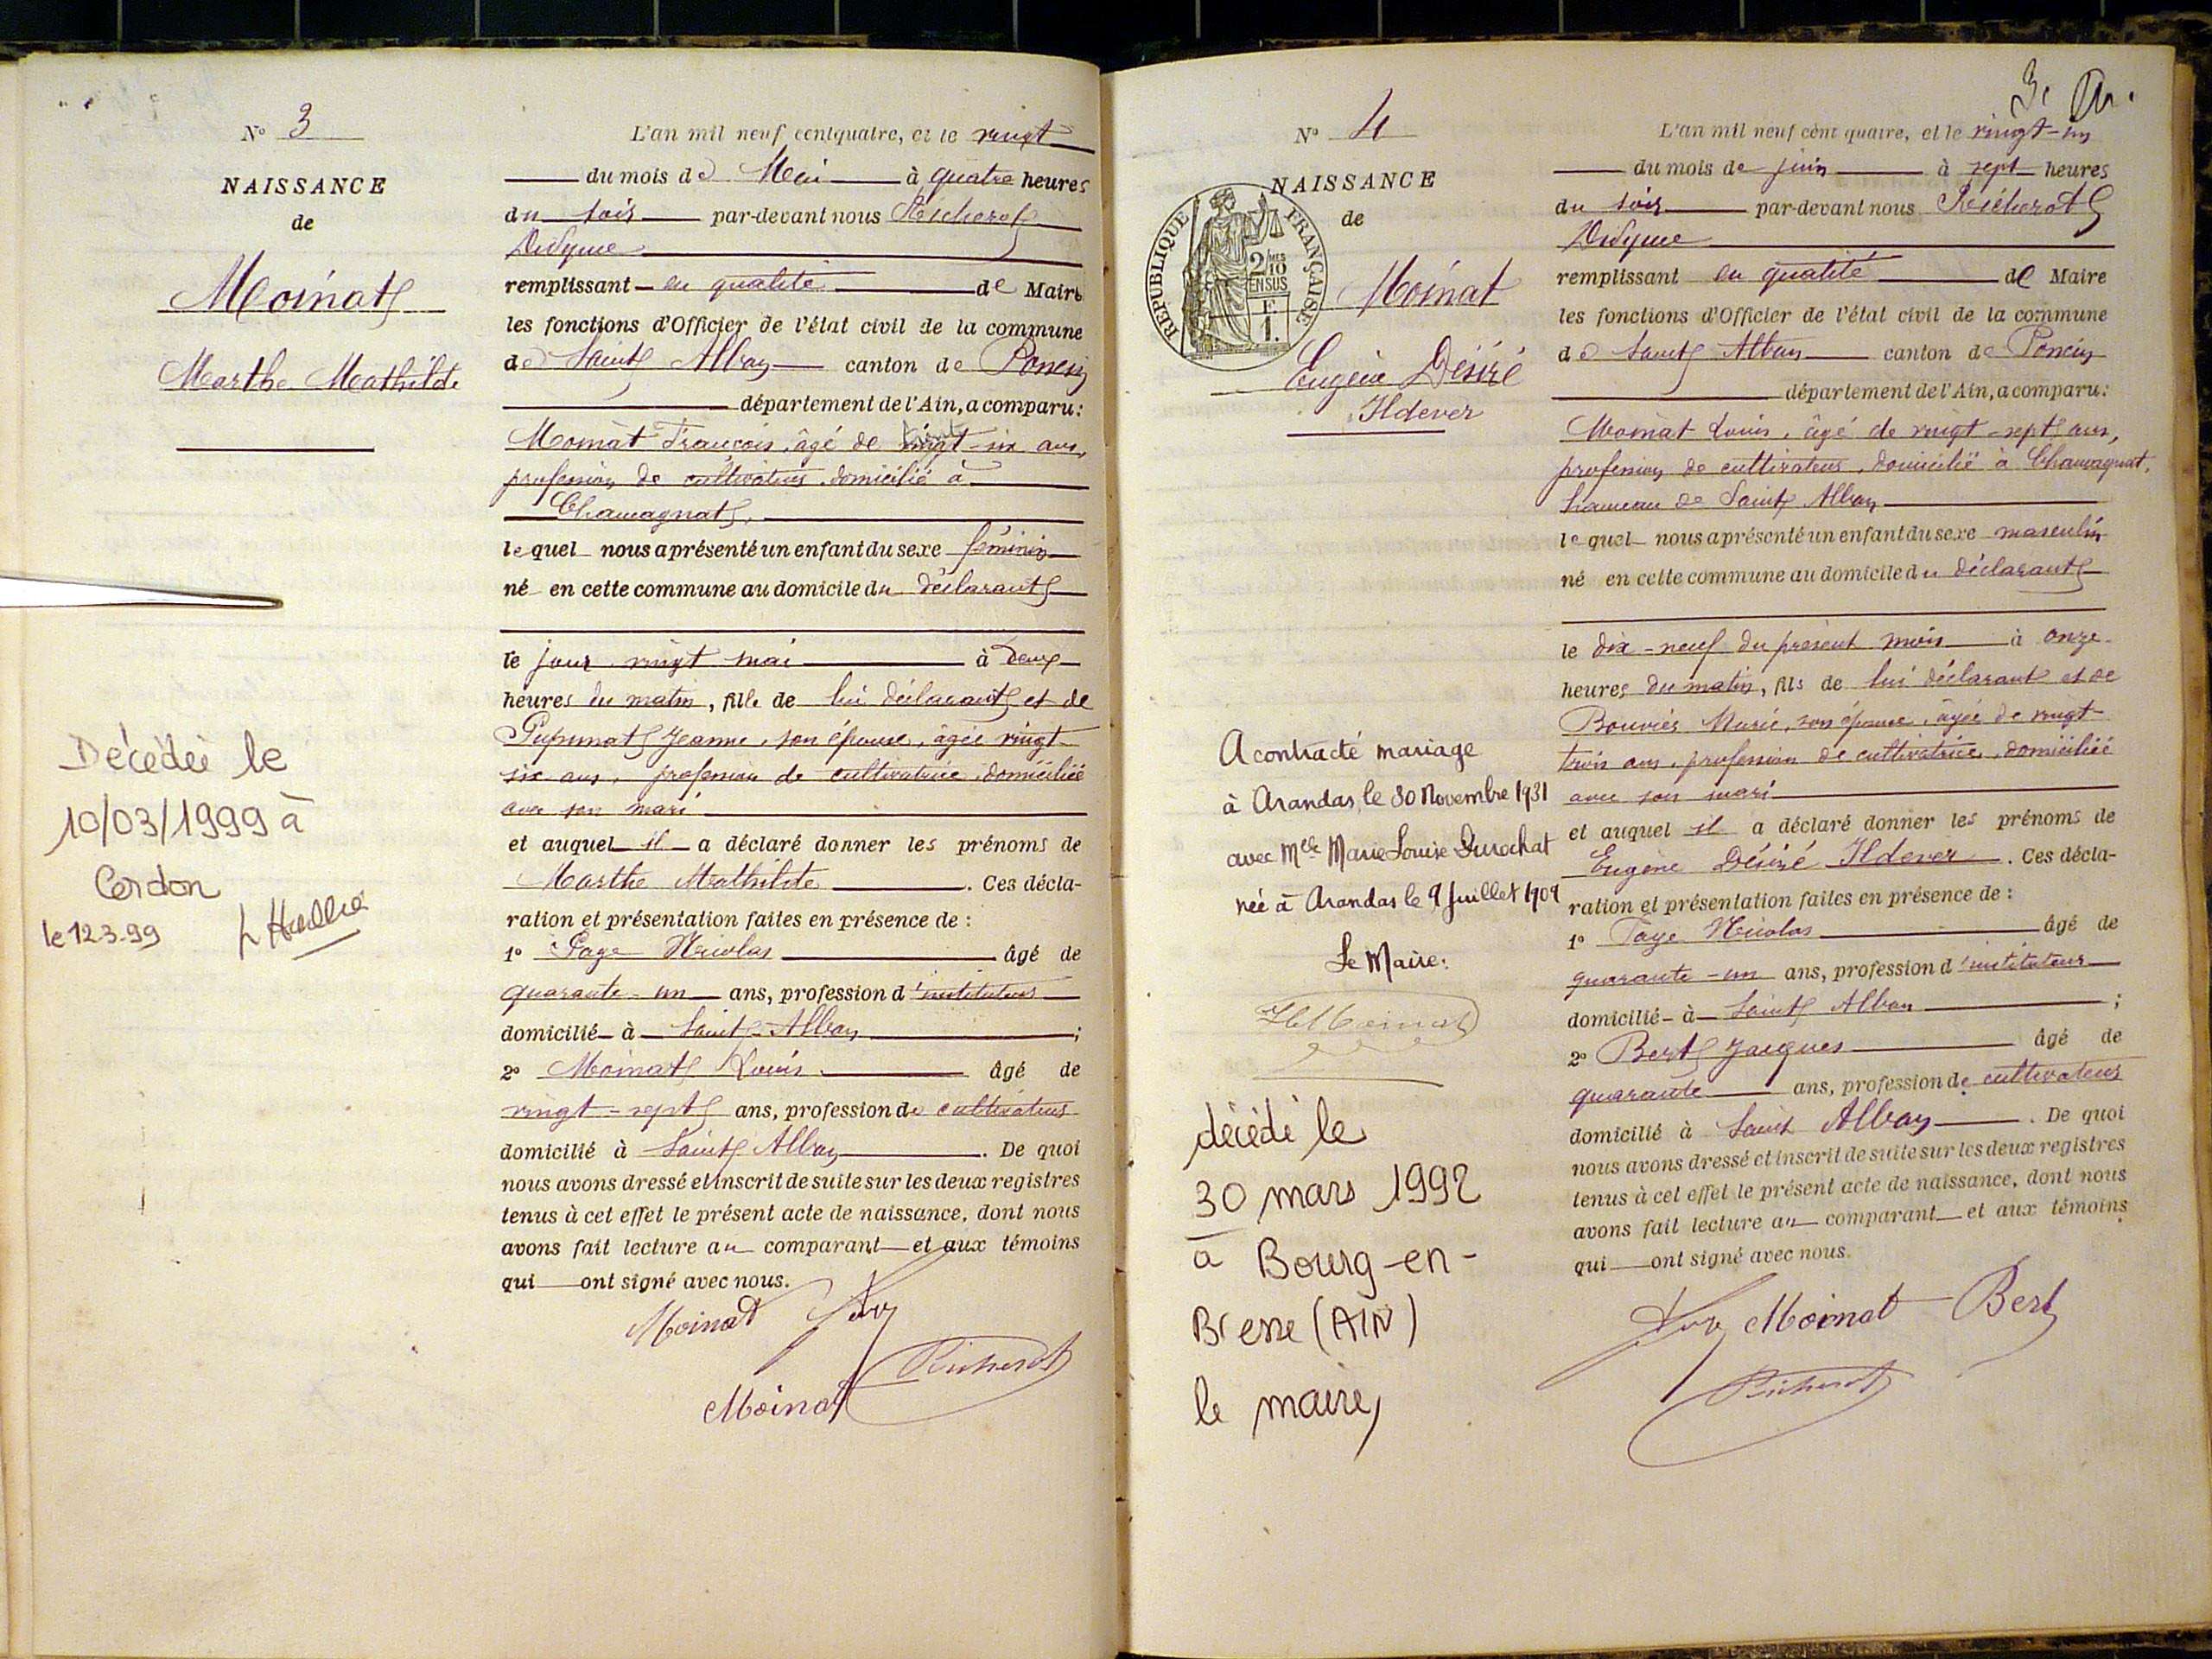 N° 3
NAISSANCE
de
Moinat
Marthe Mathilde
Décédée le
10/03/1999 à
Cerdon
le 12.3.99
L'an mil neuf cent quatre, et le vingt
du mois de Mai à quatre heures
du soir par-devant nous Richerot
Didyme
remplissant en qualité de Maire
les fonctions d'Officier de l'état civil de la commune
de Saint Alban canton de Poncin
département de l'Ain, a comparu:
Moinat François, âgé de vingt-six ans,
profession de cultivateur, domicilié à
Chamagnat,
lequel nous a présenté un enfant du sexe féminin
né en cette commune au domicile du déclarant
le jour vingt mai à deux
heures du matin, fille de lui déclarant et de
Jeanne, son épouse, âgée vingt-
six ans, profession de cultivatrice, domiciliée
avec son mari
et auquel il a déclaré donner les prénoms de
Marthe Mathilde. Ces décla-
ration et présentation faites en présence de :
1° Nicolas âgé de
quarante-un ans, profession d'instituteur
domicilié à Saint-Alban ;
2° Moinat Louis âgé de
vingt-sept ans, profession de cultivateur
domicilié à Saint Alban. De quoi
nous avons dressé et inscrit de suite sur les deux registres
tenus à cet effet le présent acte de naissance, dont nous
avons fait lecture au comparant et aux témoins
qui ont signé avec nous.
Moinat
Richerot
Moinat
3.
N° 4
NAISSANCE
de
RÉPUBLIQUE FRANÇAISE
2/10 MES
EN SUS
F
1.
Moinat
Eugène Désiré
Ildever
A contracté mariage
à Arandas, le 30 Novembre 1931
avec Melle Marie Louise Durochat
née à Arandas le 9 Juillet 1909
Le Maire:
Moinat
décédé le
30 mars 1992
à Bourg-en-
Bresse (AIN)
le maire,
L'an mil neuf cent quatre, et le vingt-un
du mois de juin à sept heures
du soir par-devant nous Richerot
Didyme
remplissant en qualité de Maire
les fonctions d'Officier de l'état civil de la commune
de Saint Alban canton de Poncin
département de l'Ain, a comparu:
Moinat Louis, âgé de vingt-sept ans,
profession de cultivateur, domicilié à Chamagnat,
hameau de Saint Alban
lequel nous a présenté un enfant du sexe masculin
né en cette commune au domicile du déclarant
le dix-neuf du présent mois à onze
heures du matin, fils de lui déclarant et de
Bouvier Marie, son épouse, âgée de vingt
trois ans, profession de cultivatrice, domiciliée
avec son mari
et auquel il a déclaré donner les prénoms de
Eugène Désiré Ildever. Ces décla-
ration et présentation faites en présence de :
1° Nicolas âgé de
quarante-un ans, profession d'instituteur
domicilié à Saint Alban ;
2° Bert Jacques âgé de
quarante ans, profession de cultivateur
domicilié à Saint Alban. De quoi
nous avons dressé et inscrit de suite sur les deux registres
tenus à cet effet le présent acte de naissance, dont nous
avons fait lecture au comparant et aux témoins
qui ont signé avec nous.
Moinat Bert
Richerot